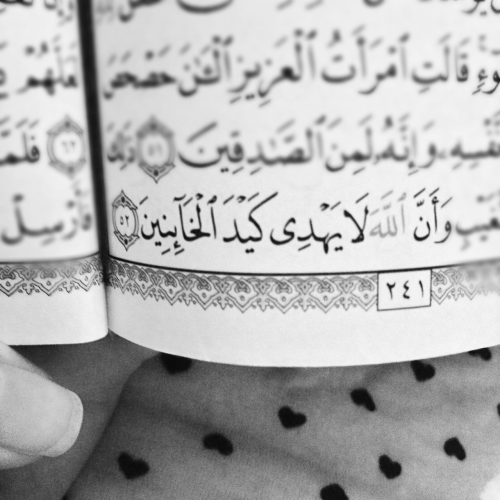 قَالَتِ ٱمْرَأَتُ ٱلْعَزِيزِ ٱلْـَٰٔنَ حَصْحَصَ
وَإِنَّهُۥ لَمِنَ ٱلصَّـٰدِقِينَ ٥١ ذَٰلِكَ
وَأَنَّ ٱللَّهَ لَا يَهْدِى كَيْدَ ٱلْخَآئِنِينَ ٥٢
٢٤١
لَعَلَّهُمْ
٦٢ فَلَمَّا
فَأَرْسِلْ